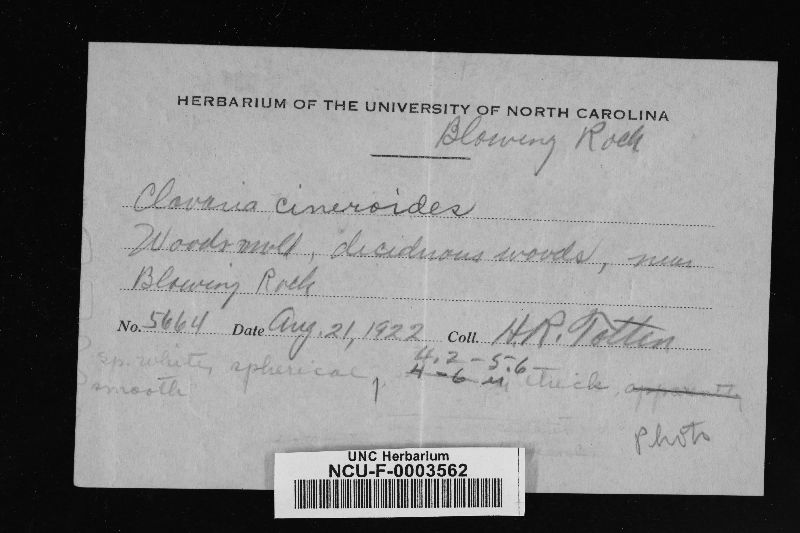 HERBARIUM OF THE UNIVERSITY OF NORTH CAROLINA
Blowing Rock
Clavaria cineroides
Woods mold, deciduous woods, near
Blowing Rock
No. 5664 Date Aug. 21, 1922 Coll. H.R. Totten
4.2-5.6
sp. white, spherical, 4-6 µ thick, apparently
smooth
Photo
UNC Herbarium
NCU-F-0003562